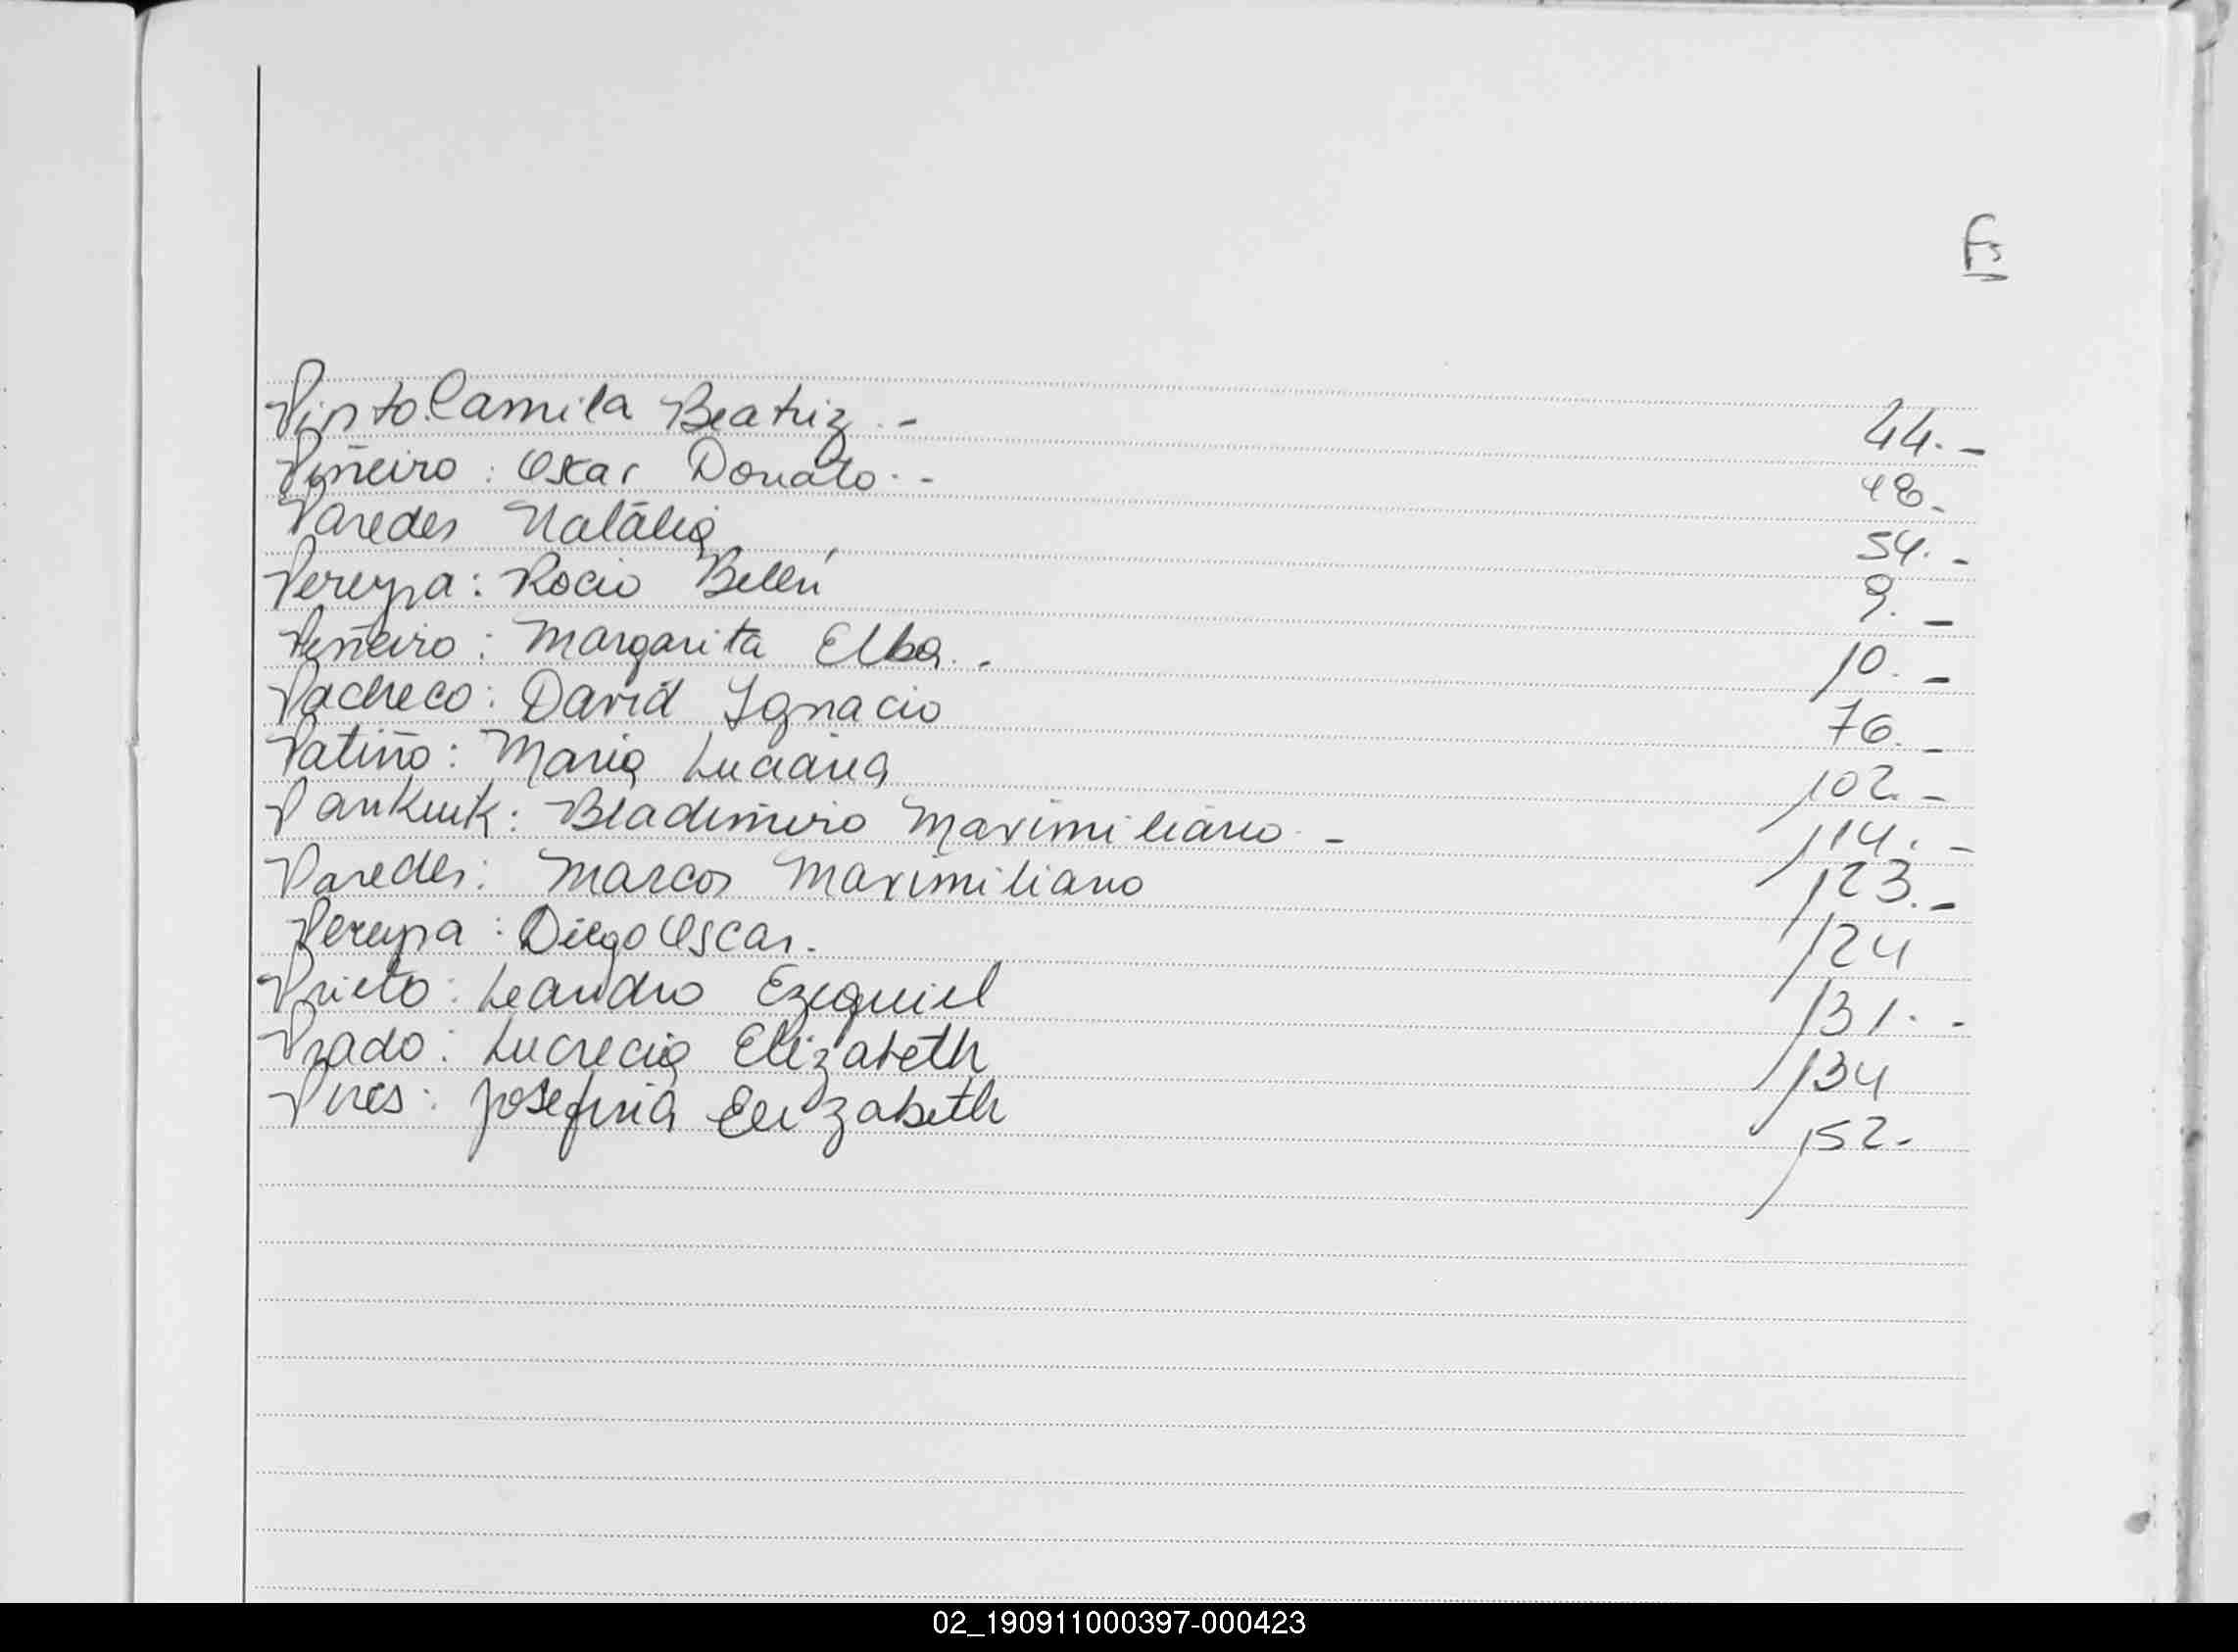 Fs
Pinto Camila Beatriz.- 44.-
Piñeiro: Oscar Donato.- 48.-
Paredes Natália 54.-
Pereyra: Rocio Belén 9.-
Piñeiro: Margarita Elba.- 10.-
Pacheco: David Ignacio 76.-
Patiño: Maria Luciana 102.-
Bladimiro Maximiliano.- 114.-
Paredes: Marcos Maximiliano 123.-
Pereyra: Diego Oscar. 124
Prieto: Leandro Ezequiel 131.-
Prado: Lucrecia Elizabeth 134
Pires: Josefina Elizabeth 152.-
02_190911000397-000423